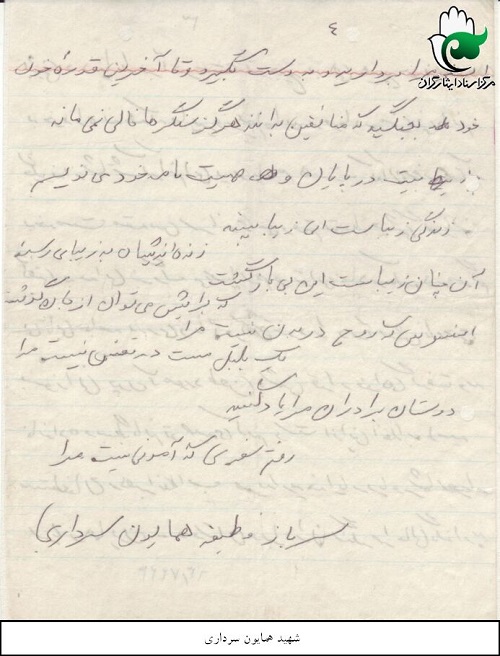 ٤
مرکز اسناد ایثارگران
را بردارید و به دست بگیرید و تا آخرین قطره خون
خود بجنگید که منافقین بدانند هرگز سنگر ما خالی نمی ماند
بیت در پایان وصیت نامه خود می نویسم
زندگی زیباست ای زیبا
زنده اندیشان به زیبایی رسند
آن چنان زیباست این بی بازگشت
که برایش می توان از جان گذشت
که روح در بدن نیست مرا
یک بلبل مست در قفس نیست مرا
دوستان برادران مرا یاد کنید
رفتم سفری که آمدن نیست مرا
سرباز وظیفه همایون سرداری
شهید همایون سرداری